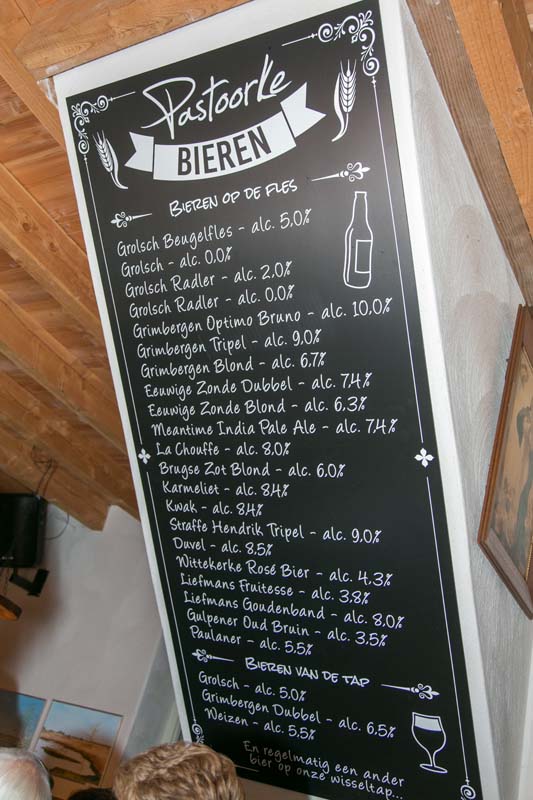 Pastoorke
BIEREN
BIEREN OP DE FLES
Grolsch Beugelfles - alc. 5,0%
Grolsch - alc. 0.0%
Grolsch Radler - alc. 2,0%
Grolsch Radler - alc. 0.0%
Grimbergen Optimo Bruno - alc. 10.0%
Grimbergen Tripel - alc. 9.0%
Grimbergen Blond - alc. 6.7%
Eeuwige Zonde Dubbel - alc. 7,4%
Eeuwige Zonde Blond - alc. 6.3%
Meantime India Pale Ale - alc. 7,4%
La Chouffe - alc. 8.0%
Brugse Zot Blond - alc. 6.0%
Karmeliet - alc. 8,4%
Kwak - alc. 8,4%
Straffe Hendrik Tripel - alc. 9.0%
Duvel - alc. 8,5%
Wittekerke Rosé Bier - alc. 4.3%
Liefmans Fruitesse - alc. 3,8%
Liefmans Goudenband - alc. 8,0%
Gulpener Oud Bruin - alc. 3,5%
Paulaner - alc. 5,5%
BIEREN VAN DE TAP
Grolsch - alc. 5.0%
Grimbergen Dubbel - alc. 6,5%
Weizen - alc. 5,5%
En regelmatig een ander
bier op onze wisseltap...